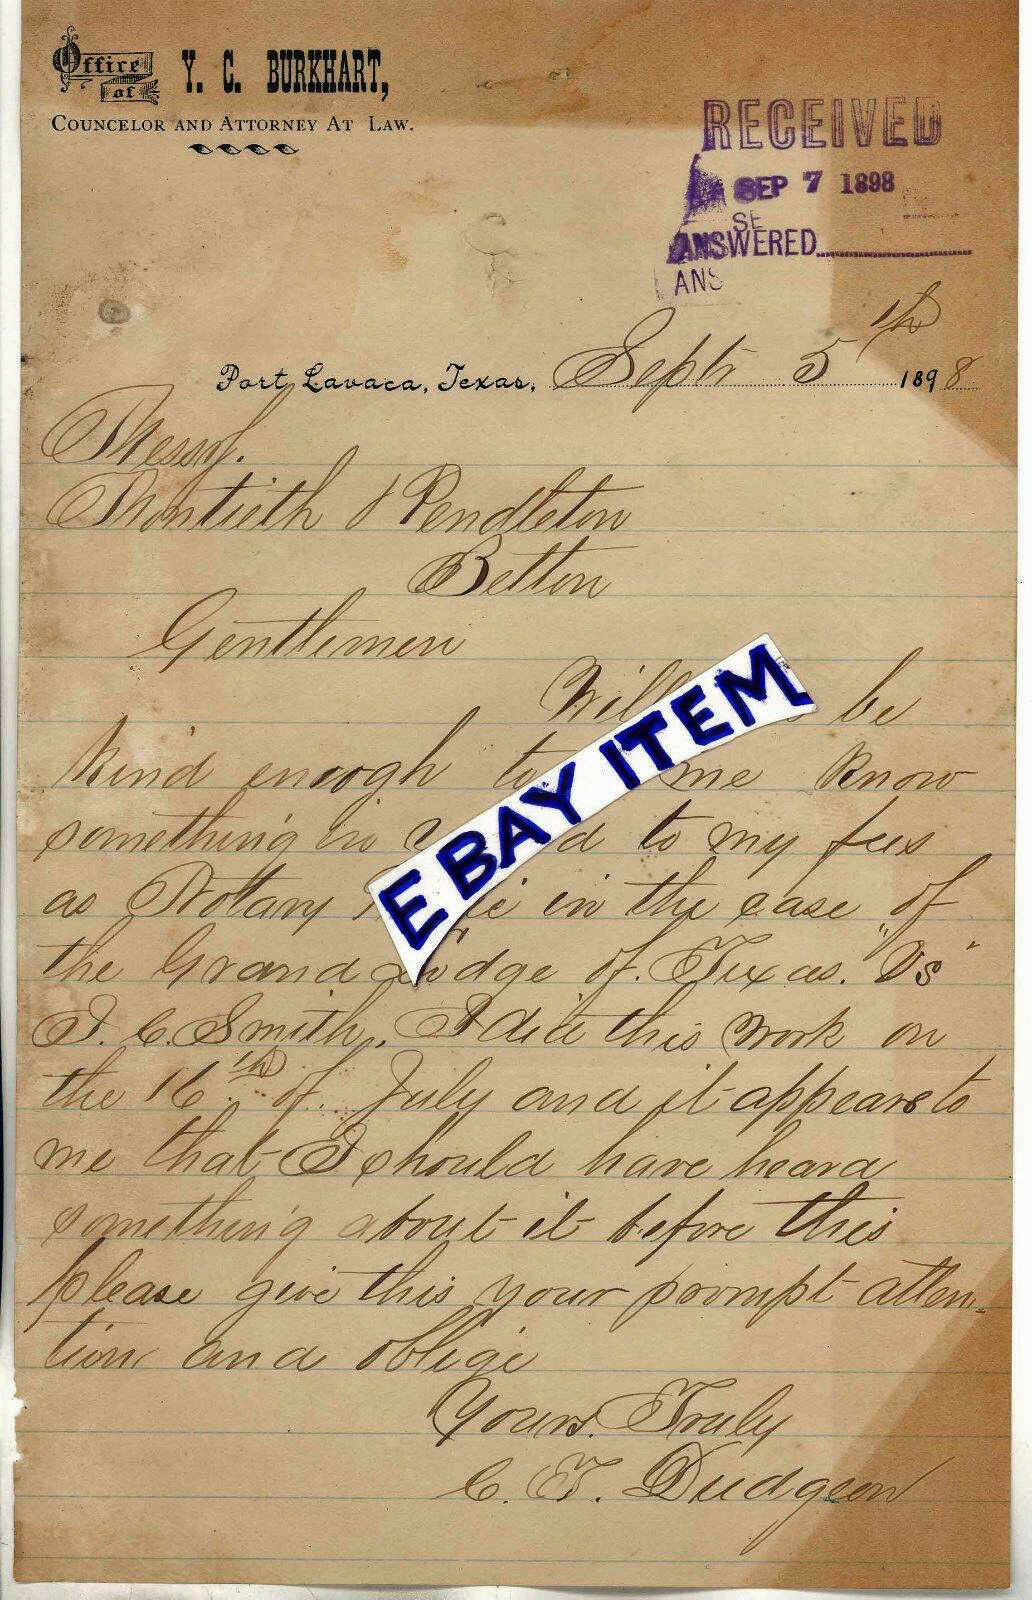 Office of Y. C. BURKHART,
COUNCELOR AND ATTORNEY AT LAW.
RECEIVED
SEP 7 1898
SE
ANSWERED
ANS
Port Lavaca, Texas, Sept 5th 1898
Messrs.
Montieth & Pendleton
Belton
Gentlemen
Will be
kind enough to me know
something in d to my fees
as Notary in the case of
the Grand Lodge of Texas. "Vs"
J. C. Smith. I did this work on
the 16th of July and it appears to
me that I should have heard
something about it before this
please give this your prompt atten-
tion and oblige
Yours. Truly
C. T. Dudgeon
EBAY ITEM